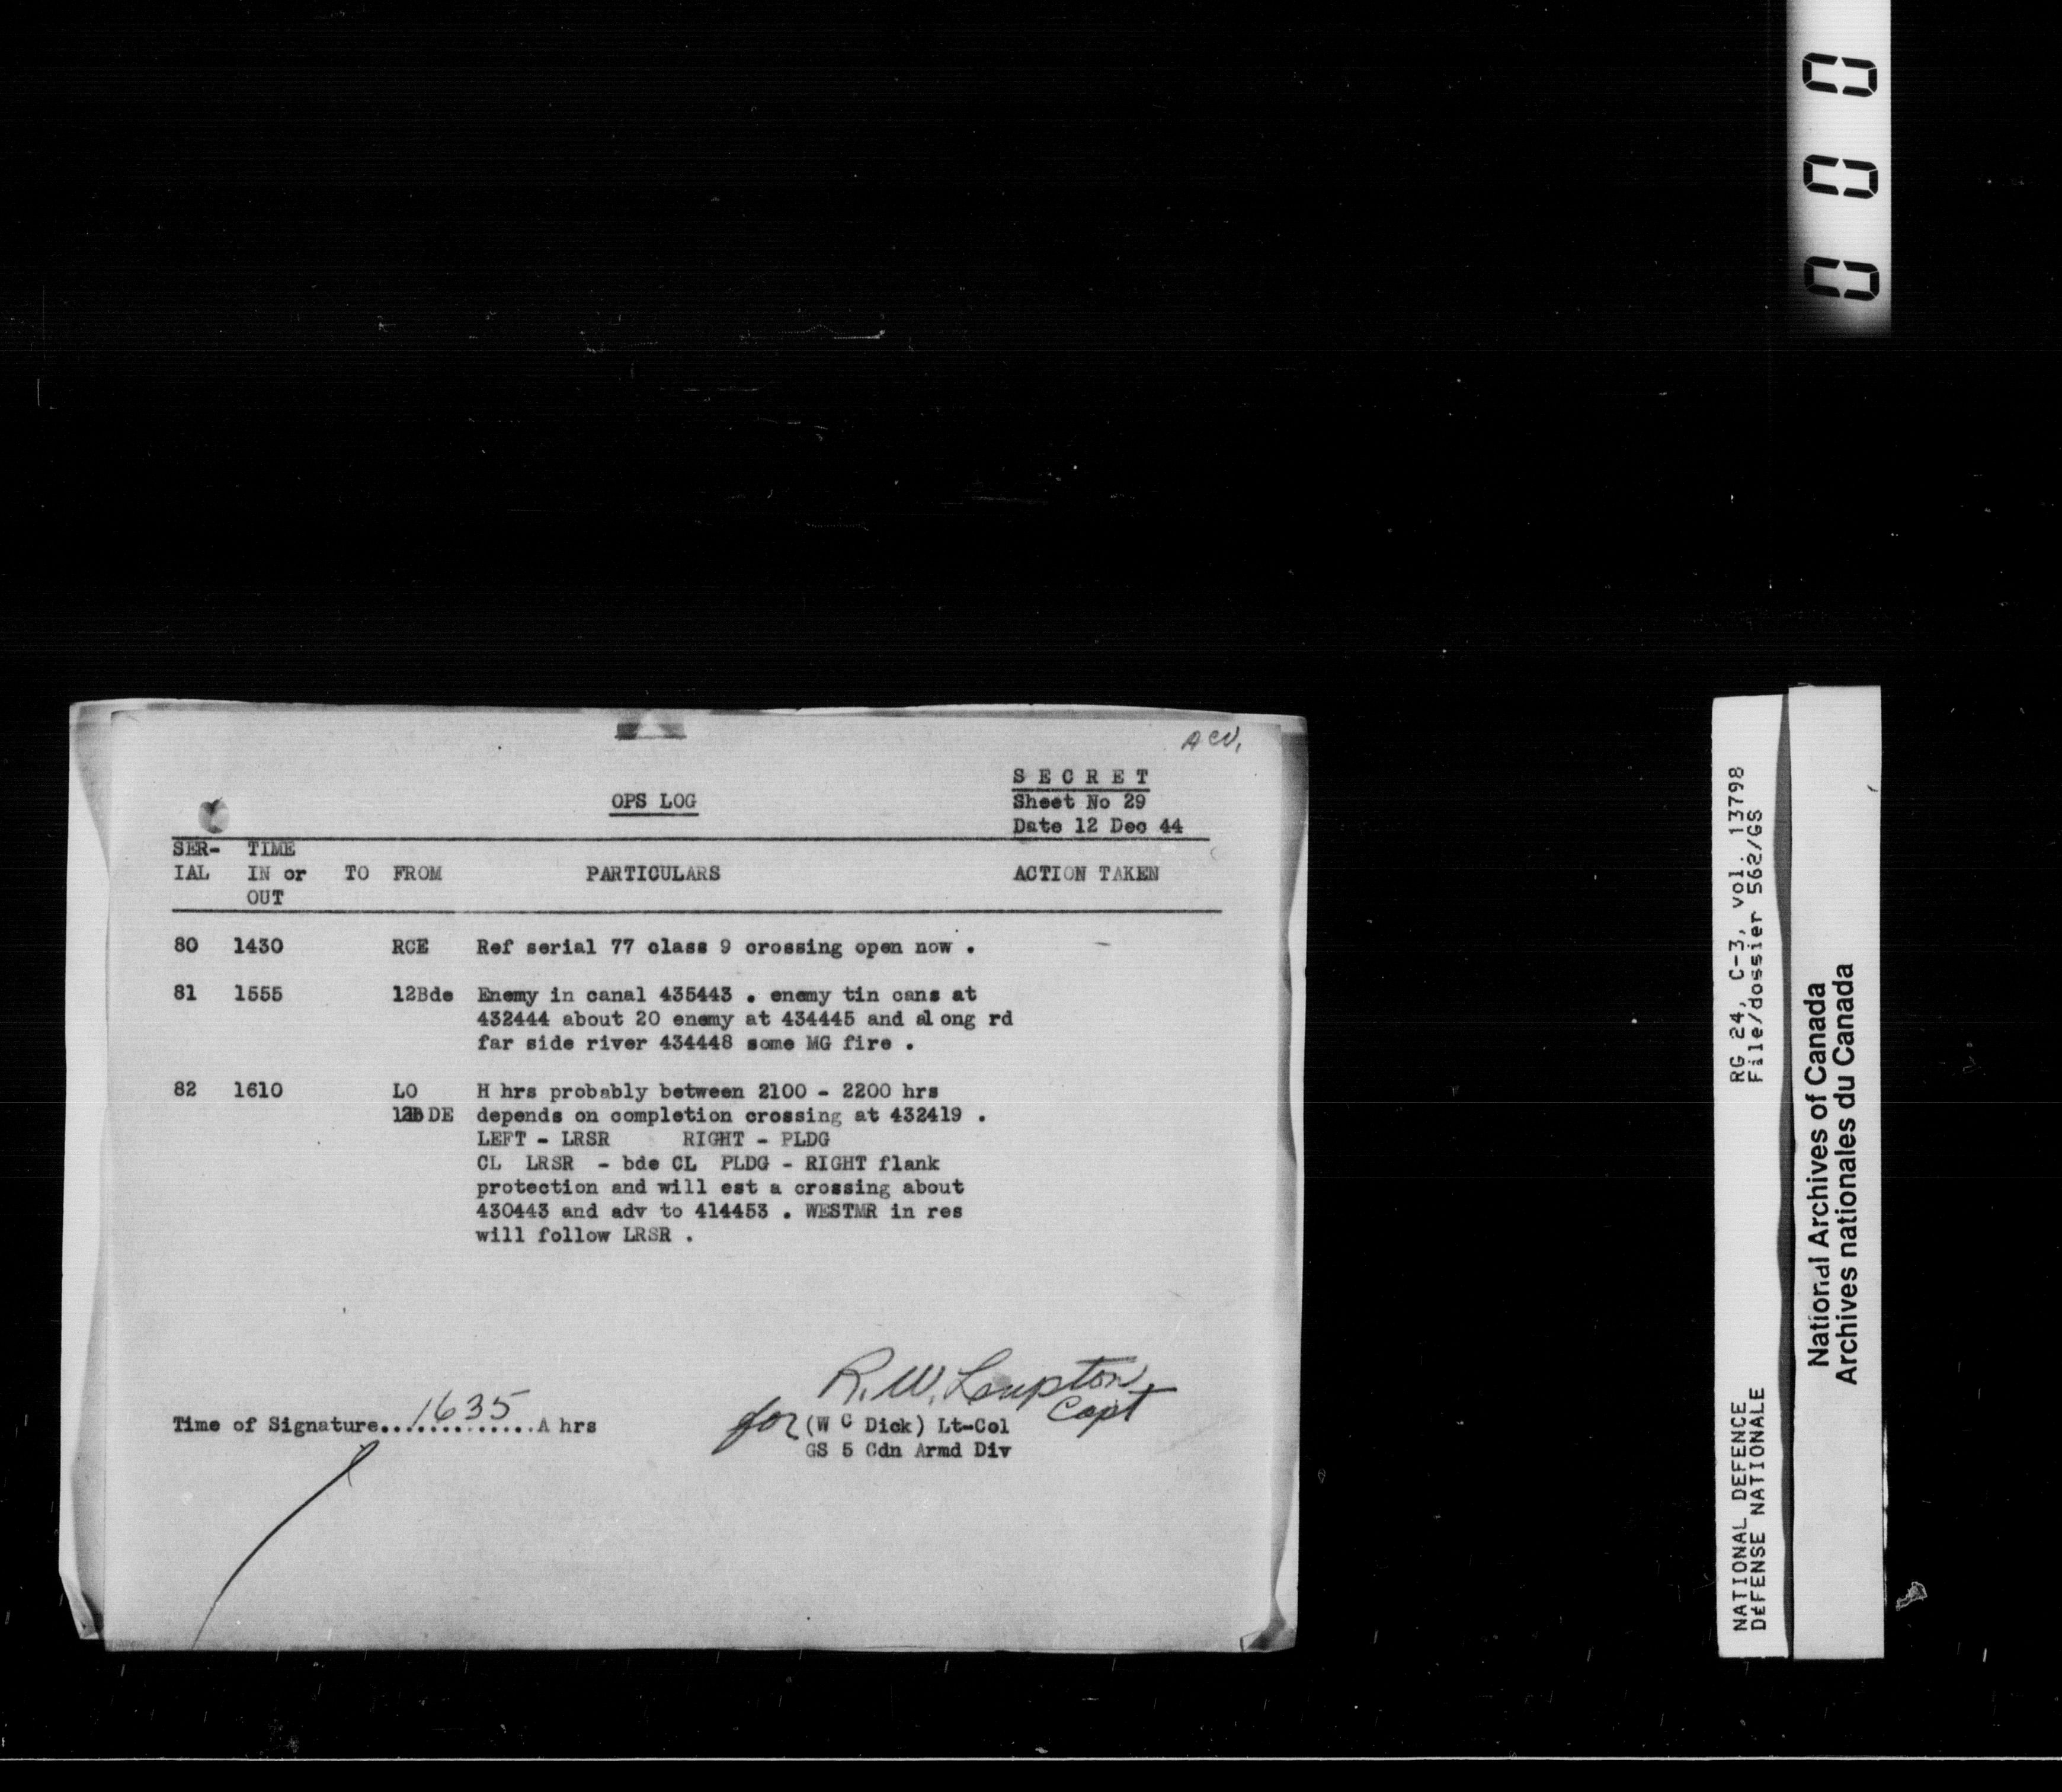 0 0 0
ACV,
S E C R E T
OPS LOG
Sheet No 29
Date 12 Dec 44
SER- TIME
IAL IN or TO FROM PARTICULARS ACTION TAKEN
OUT
80 1430 RCE Ref serial 77 class 9 crossing open now .
81 1555 12Bde Enemy in canal 435443 . enemy tin cans at
432444 about 20 enemy at 434445 and along rd
far side river 434448 some MG fire .
82 1610 LO H hrs probably between 2100 - 2200 hrs
12BDE depends on completion crossing at 432419 .
LEFT - LRSR RIGHT - PLDG
CL LRSR - bde CL PLDG - RIGHT flank
protection and will est a crossing about
430443 and adv to 414453 . WESTMR in res
will follow LRSR .
R.W. Lupton
Capt
Time of Signature....1635....A hrs
for (W C Dick) Lt-Col
GS 5 Cdn Armd Div
RG 24, C-3, vol. 13798
File/dossier 562/GS
NATIONAL DEFENCE
DÉFENSE NATIONALE
National Archives of Canada
Archives nationales du Canada